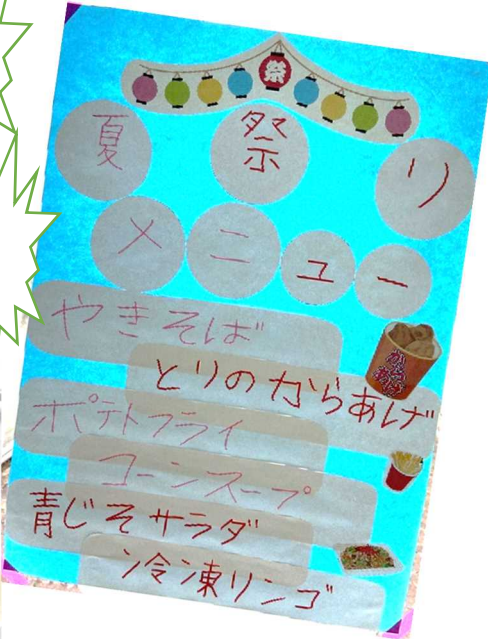 祭
夏祭り
メニュー
やきそば
とりのからあげ
ポテトフライ
コーンスープ
青じそサラダ
冷凍リンゴ